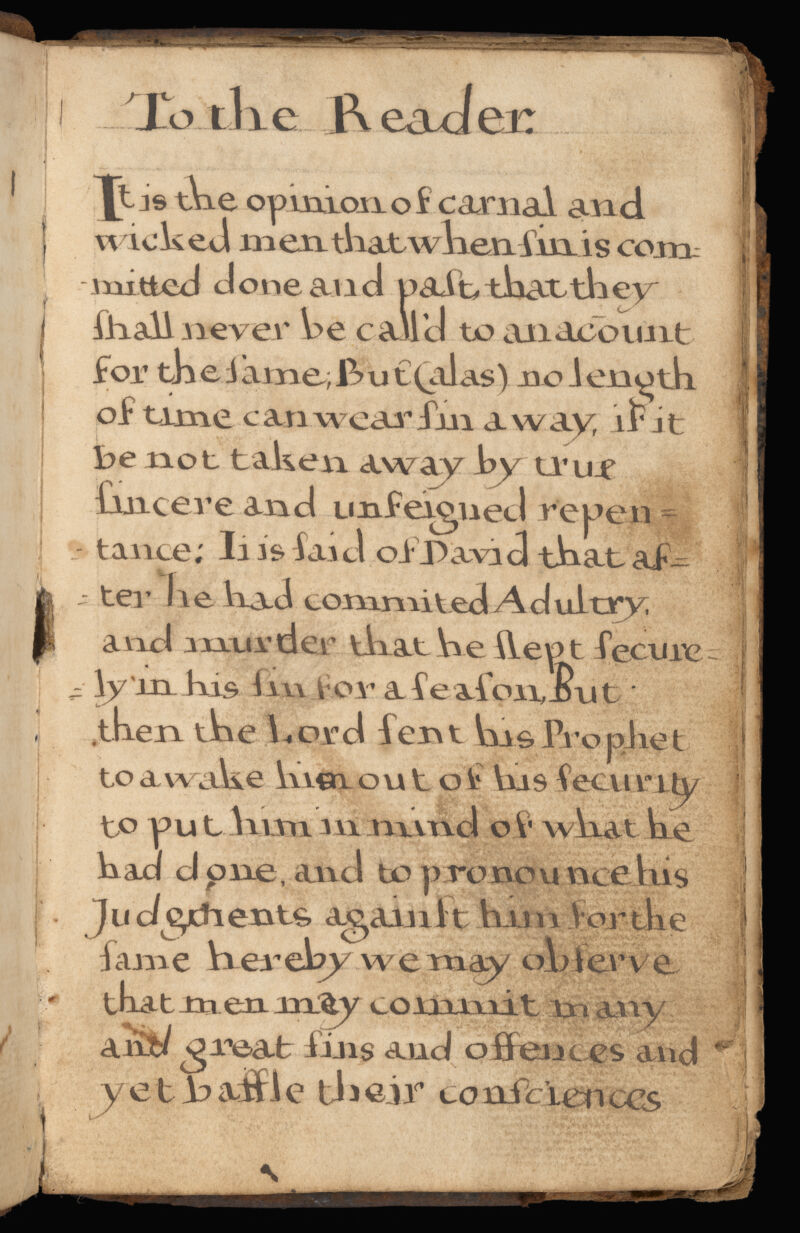 To the Reader.
It is the opinion of carnal and
wicked men that when ſin is com=
-mitted done and paſt, that they
ſhall never be call'd to an acōunt
for the ſame; But (alas) no length
of time can wear ſin away, if it
be not taken away by true
ſincere and unfeigned repen=
-tance: It is ſaid of David that af=
=ter he had commited Adultry,
and murder that he ſlept ſecure=
=ly in his ſin for a ſeaſon, But
then the Lord ſent his Prophet
to awake him out of his ſecurity
to put him in mind of what he
had done, and to pronounce his
Judgments againſt him for the
ſame hereby we may obſerve
that men may commit many
and great ſins and offences and
yet baffle their conſciences